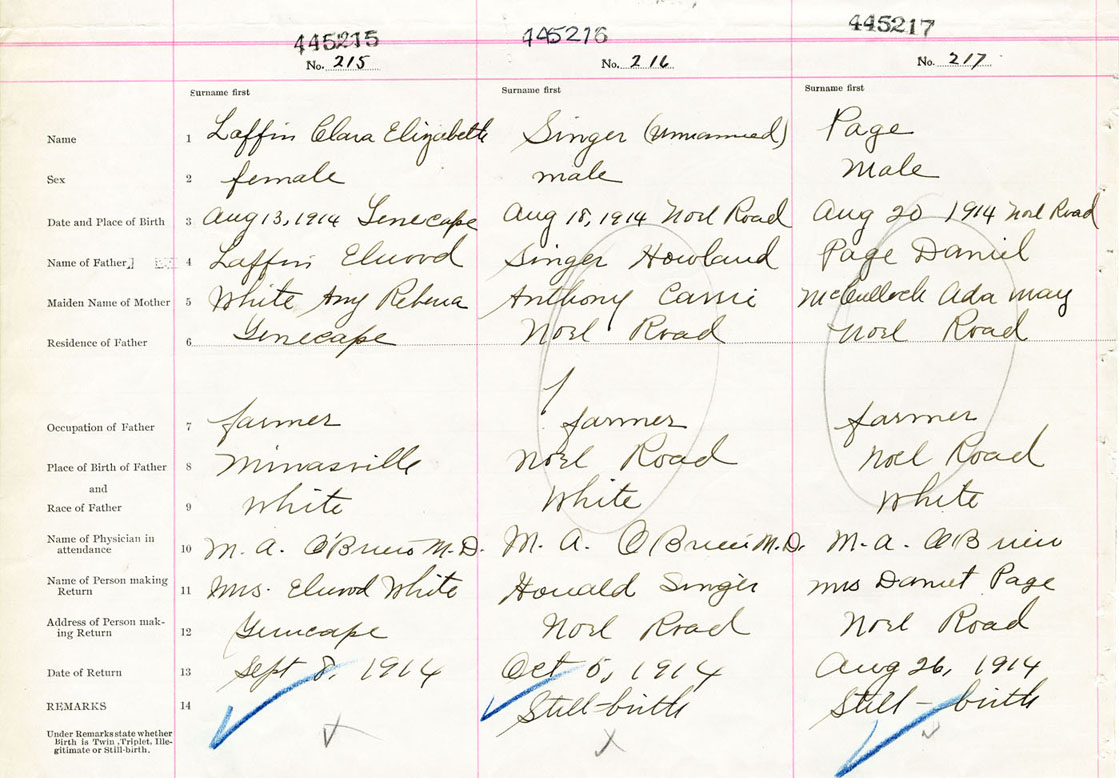 445215 445216 445217
No. 215 No. 216 No. 217
Surname first Surname first Surname first
Name 1 Laffin Clara Elizabeth Singer (unnamed) Page
Sex 2 female male Male
Date and Place of Birth 3 Aug 13, 1914 Tenecape Aug 18, 1914 Noel Road Aug 20 1914 Noel Road
Name of Father 4 Laffin Elwood Singer Howland Page Daniel
Maiden Name of Mother 5 White Amy Rebena Anthony Carrie McCullock Ada may
Residence of Father 6 Tenecape Noel Road Noel Road
Occupation of Father 7 farmer farmer farmer
Place of Birth of Father 8 Minasville Noel Road Noel Road
and
Race of Father 9 White White White
Name of Physician in
attendance 10 M. A. O'Brien M. D. M. A. O'Brien M. D. M. A. O'Brien
Name of Person making
Return 11 Mrs. Elwood White Singer mrs Page
Address of Person mak-
ing Return 12 Tenecape Noel Road Noel Road
Date of Return 13 Sept 8, 1914 Oct 5, 1914 Aug 26, 1914
REMARKS 14 Still-birth Still-birth
Under Remarks state whether
Birth is Twin, Triplet, Ille-
gitimate or Still-birth.